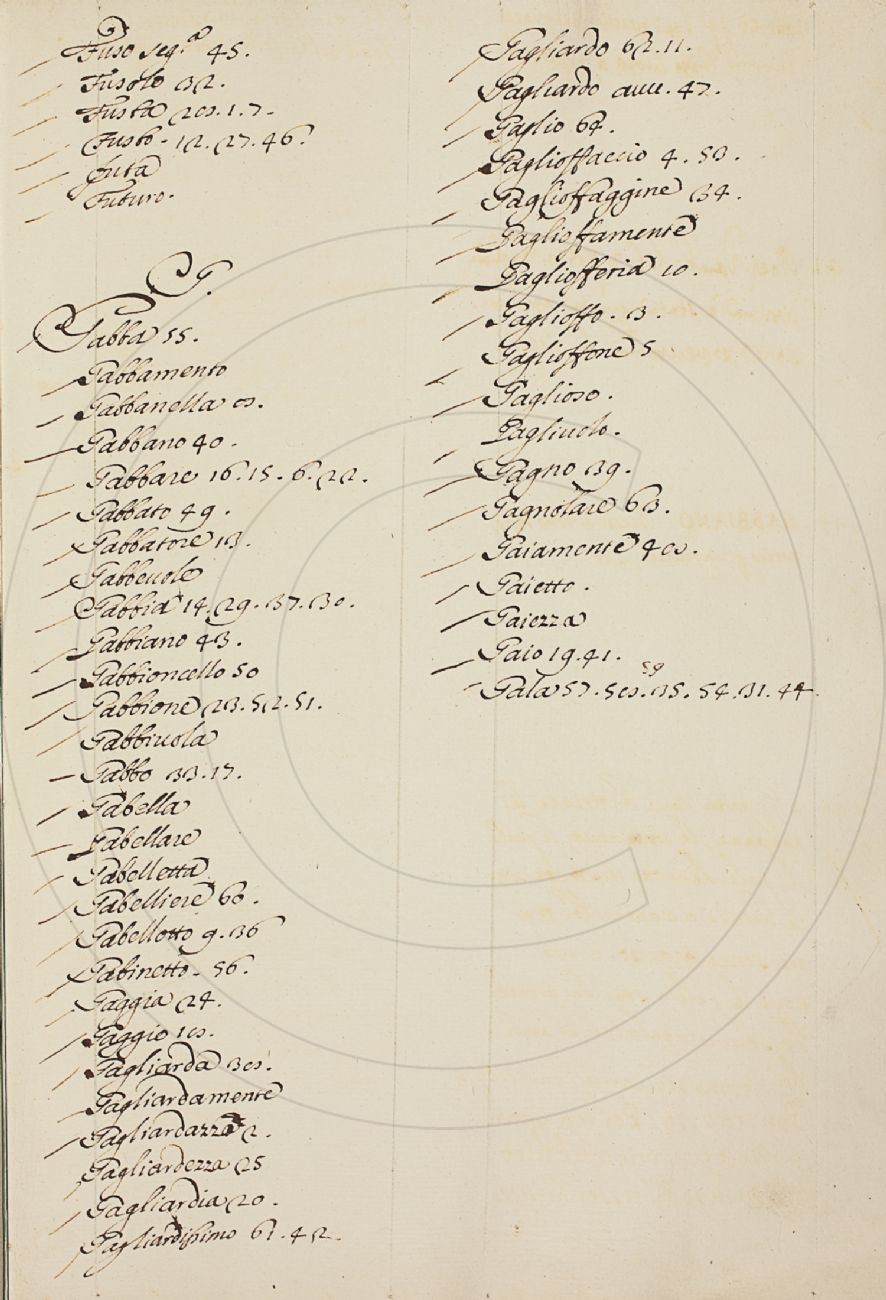 Fuso seg.ª 45.
Fusolo 32.
Fusta 28.1.7.
Fusto. 12.27.46.
futa
Futuro.
G.
Gabba 55.
Gabbamento
Gabbanella 8.
Gabbano 40.
Gabbare 16.15.6.22.
Gabbato 49.
Gabbatore 13.
Gabbeuole
Gabbia 14.29.37.30.
Gabbiano 43.
Gabbioncello 50
Gabbione 23.52.51.
Gabbiuola
Gabbo 33.17.
Gabella
Gabellare
Gabelletta
Gabelliere 60.
Gabellotto 9.36
Gabinetto. 56.
Gaggia 24.
Gaggio 18.
Gagliarda 38.
Gagliardamente
Gagliardazza 2.
Gagliardezza 25
Gagliardia 20.
Gagliardissimo 61.42.
Gagliardo 62.11.
Gagliardo auu. 47.
Gaglio 64.
Gaglioffaccio 4.53.
Gaglioffaggine 34.
Gaglioffamente
Gagliofferia 10.
Gaglioffo. 3.
Gaglioffone 5
Gaglioso.
Gagliuolo.
Gagno 39.
Gagnolare 63.
Gaiamente 48.
Gaietto.
Gaiezza
Gaio 19.41.
59
Gala 57.58.35.54.31.44.